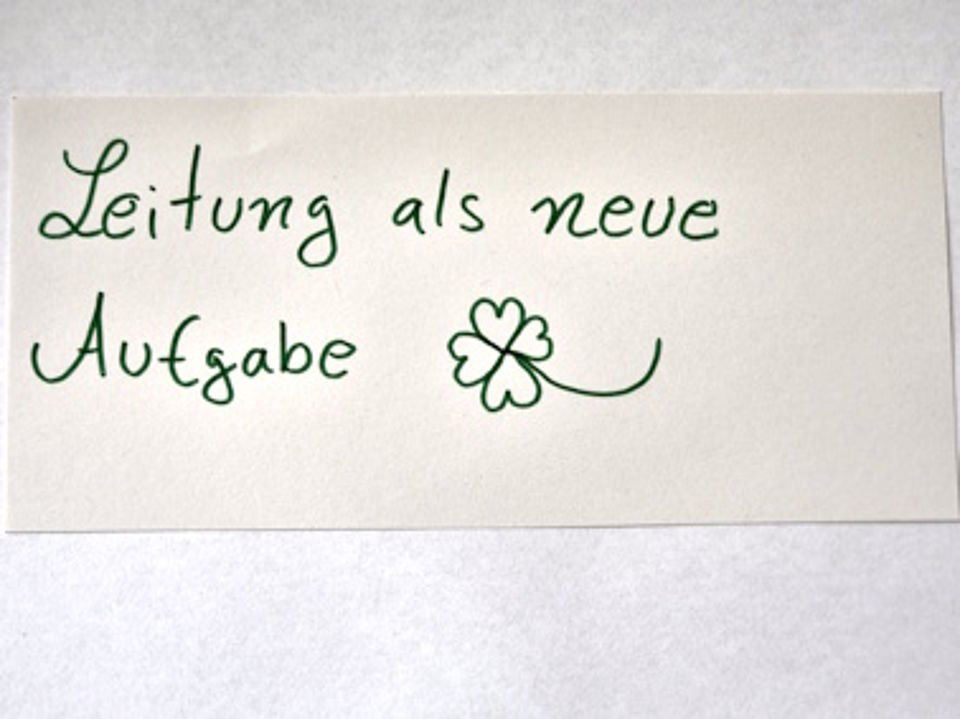 Leitung als neue
Aufgabe